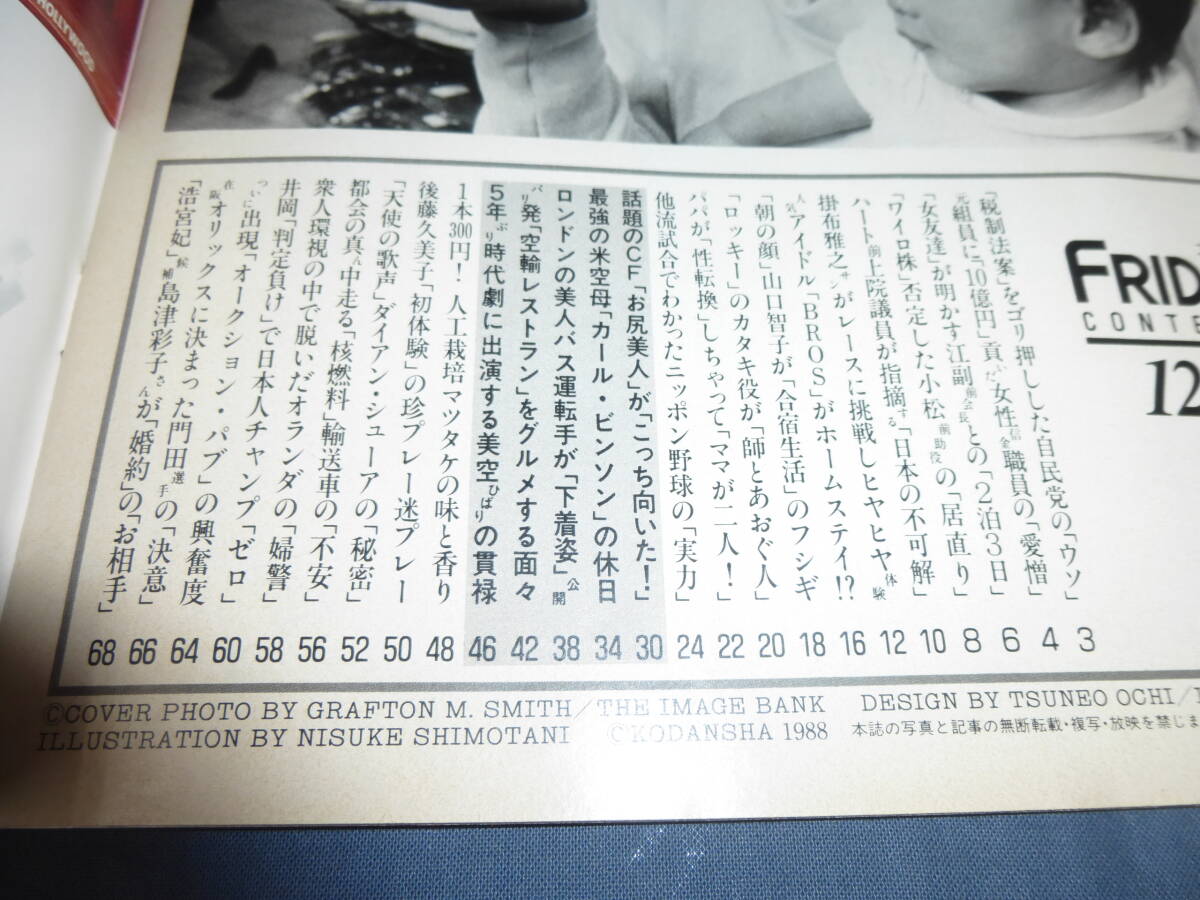 HOLLYWOOD
FRID
CONTE
12
「税制法案」をゴリ押しした自民党の「ウソ」 3
元組員に「10億円」貢いだ女性信金職員の「愛憎」 4
「女友達」が明かす江副前会長との「2泊3日」 6
「ワイロ株」否定した小松前助役の「居直り」 8
ハート前上院議員が指摘する「日本の不可解」 10
掛布雅之サンがレースに挑戦しヒヤヒヤ体験 12
人気アイドル「BROS」がホームステイ!? 16
「朝の顔」山口智子が「合宿生活」のフシギ 18
「ロッキー」のカタキ役が「師とあおぐ人」 20
パパが「性転換」しちゃって「ママが二人!」 22
他流試合でわかったニッポン野球の「実力」 24
話題のCF「お尻美人」が「こっち向いた!」 30
最強の米空母「カール・ビンソン」の休日 34
ロンドンの美人バス運転手が「下着姿」公開 38
パリ発「空輸レストラン」をグルメする面々 42
5年ぶり時代劇に出演する美空ひばりの貫禄 46
1本300円!人工栽培マツタケの味と香り 48
後藤久美子「初体験」の珍プレー迷プレー 50
「天使の歌声」ダイアン・シューアの「秘密」 52
都会の真ん中走る「核燃料」輸送車の「不安」 56
衆人環視の中で脱いだオランダの「婦警」 58
井岡「判定負け」で日本人チャンプ「ゼロ」 60
ついに出現「オークション・パブ」の興奮度 64
在阪オリックスに決まった門田選手の「決意」 66
「浩宮妃」候補島津彩子さんが「婚約」の「お相手」 68
©COVER PHOTO BY GRAFTON M. SMITH/THE IMAGE BANK DESIGN BY TSUNEO OCHI/
ILLUSTRATION BY NISUKE SHIMOTANI ©KODANSHA 1988 本誌の写真と記事の無断転載・複写・放映を禁じま